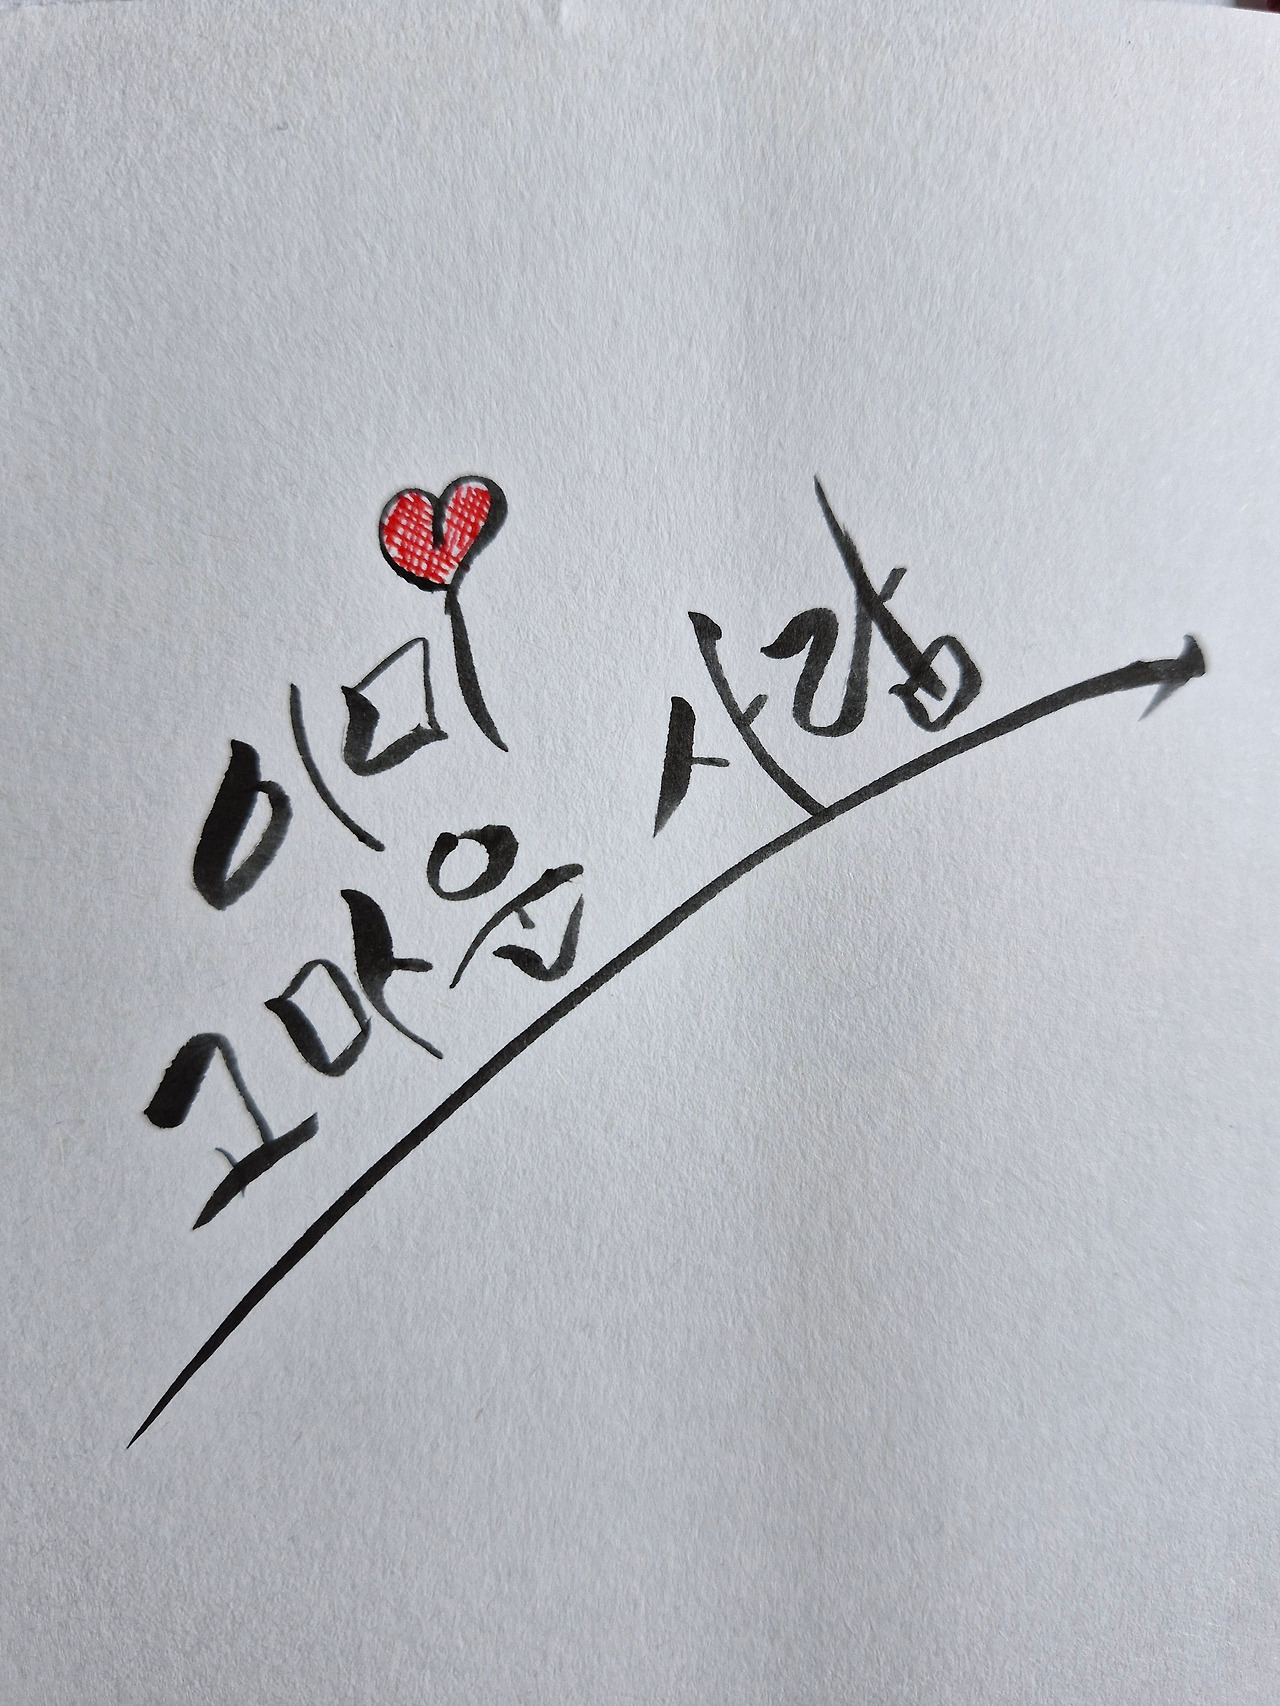 이미
고마운 사람